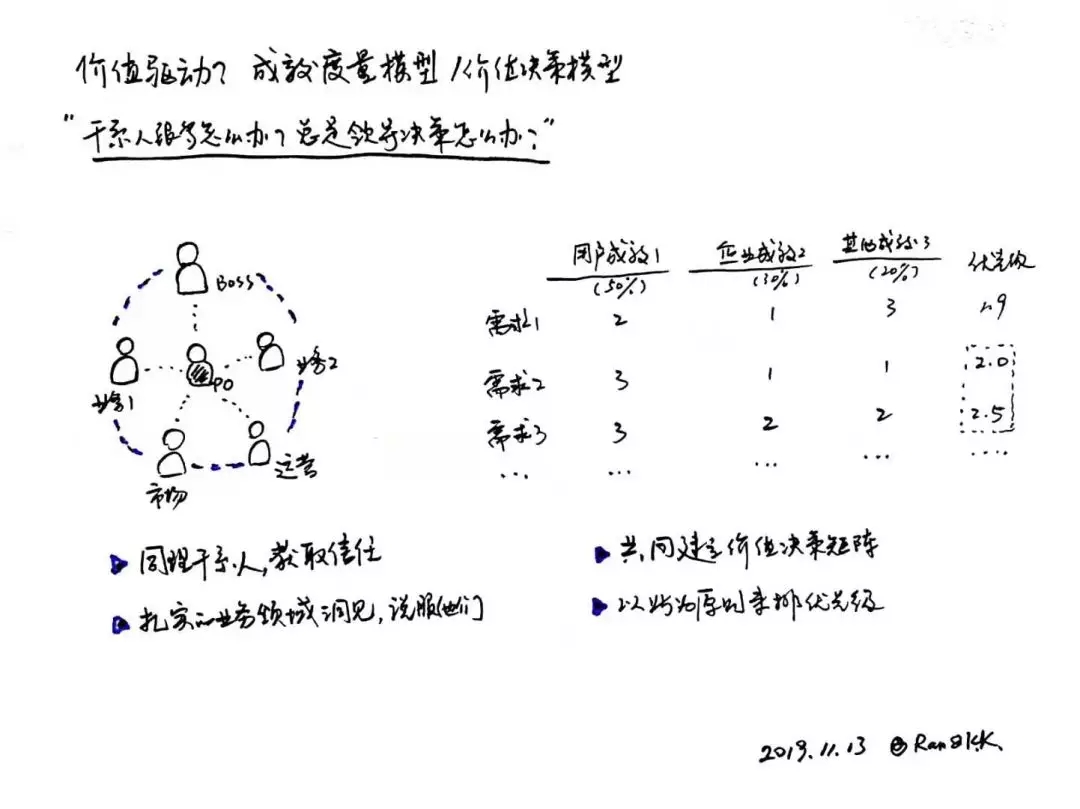 价值驱动? 成效度量模型/价值决策模型
"干系人很多怎么办?总是领导决策怎么办?"
Boss
业务1
PO
业务2
市场
运营
用户成效1 企业成效2 其他成效3 优先级
(50%) (30%) (20%)
需求1 2 1 3 1.9
需求2 3 1 1 2.0
需求3 3 2 2 2.5
... ... ... ... ...
同理干系人,获取信任
扎实的业务领域洞见,说服他们
共同建立价值决策矩阵
以此为原则来排优先级
2019.11.13